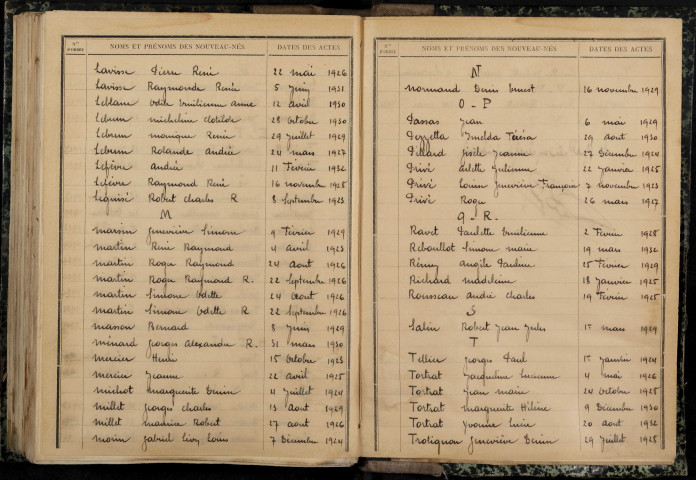 Nos D'ORDRE NOMS ET PRÉNOMS DES NOUVEAU-NÉS DATES DES ACTES
Lavisse Pierre René 22 mai 1926
Lavisse Raymonde Renée 5 Juin 1931
Leblanc Odile Emilienne Anne 12 avril 1930
Lebrun Micheline Clotilde 28 Octobre 1930
Lebrun Monique Renée 29 Juillet 1929
Lebrun Rolande Andrée 24 mars 1927
Lefèvre Andrée 11 Février 1932
Lefèvre Raymond René 16 novembre 1928
Robert Charles R 8 Septembre 1923
M
Marsin Geneviève Simone 9 Février 1929
Martin René Raymond 4 avril 1923
Martin Roger Raymond 24 aout 1926
Martin Roger Raymond R. 22 Septembre 1926
Martin Simone Odette 24 aout 1926
Martin Simone Odette R 22 Septembre 1926
Masson Bernard 8 Juin 1929
Ménard Georges Alexandre R. 31 mars 1930
Mercier Henri 15 Octobre 1923
Mercier Jeanne 22 avril 1925
Michot Marguerite 4 Juillet 1924
Millet Georges Charles 13 aout 1929
Millet Maurice Robert 27 aout 1926
Morin Gabriel Louis 7 Décembre 1924
Nos D'ORDRE NOMS ET PRÉNOMS DES NOUVEAU-NÉS DATES DES ACTES
N
Normand Denis Ernest 16 novembre 1929
O - P
Passas Jean 6 mai 1929
Pezzetta Imelda Térésa 29 aout 1930
Pillard Gisèle Jeanne 27 Décembre 1924
Privé Arlette Julienne 22 Janvier 1925
Privé Louise Geneviève Françoise 7 novembre 1923
Privé Roger 26 mars 1927
Q - R.
Ravet Paulette Emilienne 2 Février 1928
Reboullot Simone Marie 19 mars 1932
Rémy Angèle Pauline 25 Février 1929
Richard Madeleine 18 Janvier 1925
Rousseau André Charles 19 Février 1925
S
Salin Robert Jean Jules 1er mars 1929
T
Tellier Georges Paul 1er Janvier 1924
Tortrat Jacqueline Lucienne 4 mai 1926
Tortrat Jean Marie 24 Octobre 1928
Tortrat Marguerite Hélène 9 Décembre 1930
Tortrat Yvonne Lucie 20 aout 1932
Trotignon Geneviève 29 Juillet 1928